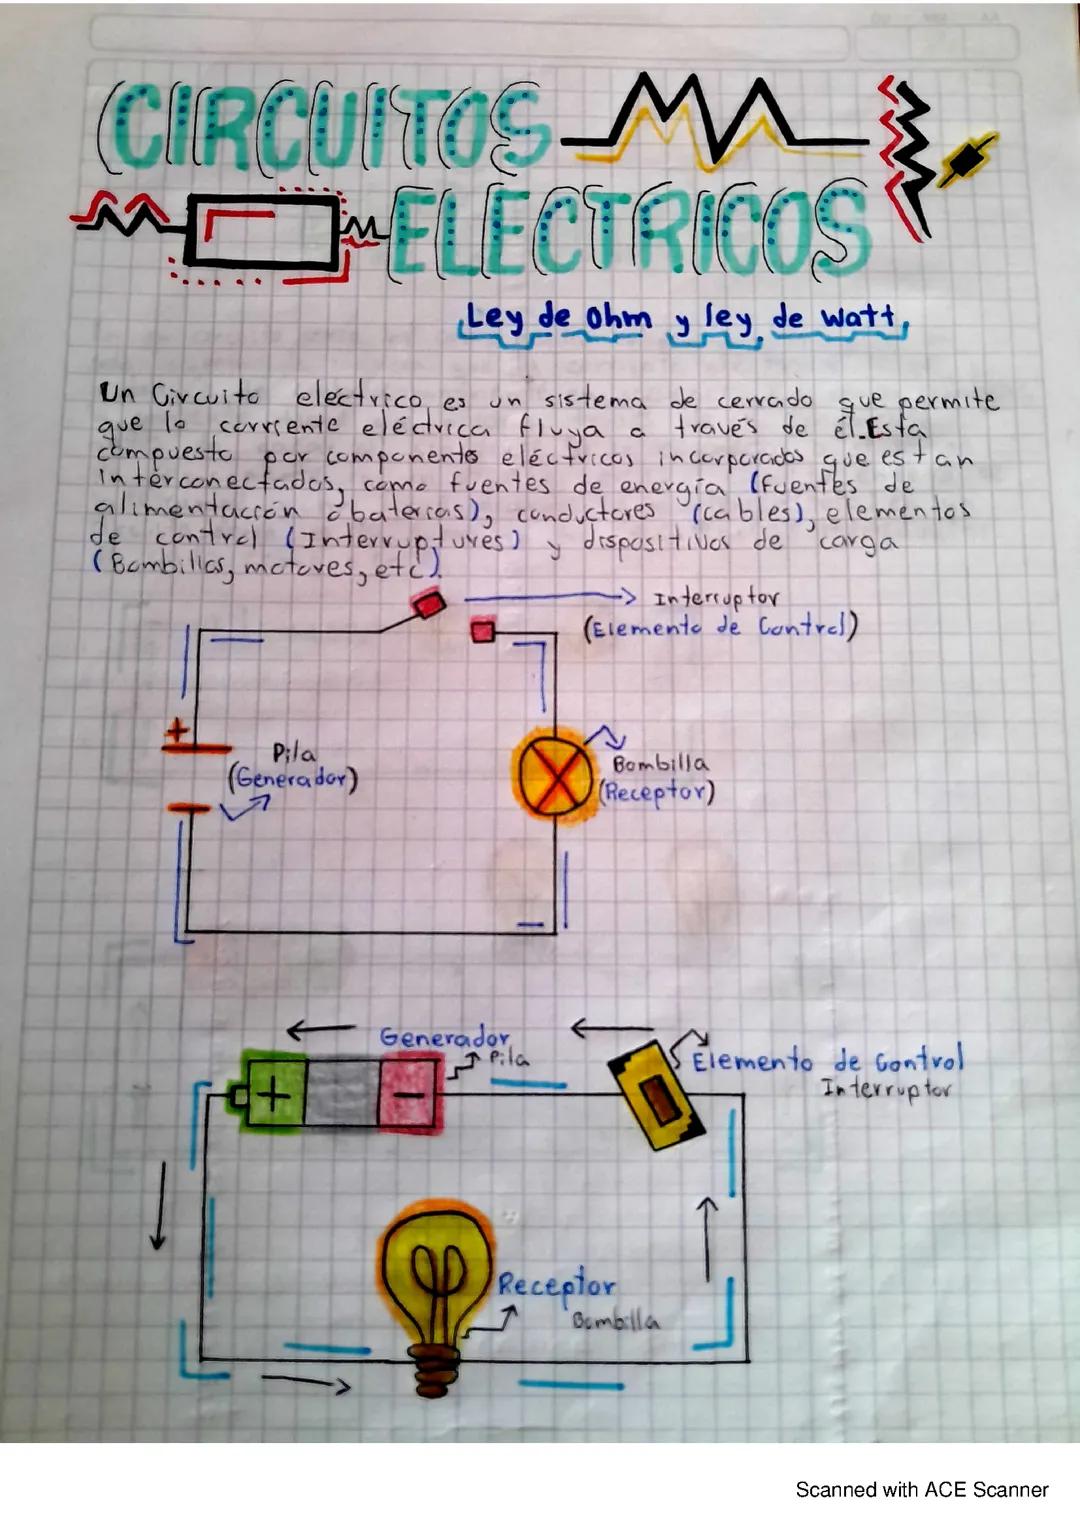 CIRCUITOS
ELECTRICOS
Ley de Ohm y ley de watt
Un Circuito eléctrico es un sistema de cerrado que permite
que la corriente eléctrica fluya a través de él. Esta
compuesto por componentes eléctricos incorporados que estan
Interconectados, como fuentes de energía (fuentes de
alimentación o baterias), conductores (cables), elementos
de control (Interruptures) y dispositivos de carga
(Bombillas, motores, etc).
Interruptor
(Elemento de Control)
+
Pila
(Generador)
Bombilla
(Receptor)
Generador
Pila
+ -
Elemento de Control
Interruptor
Receptor
Bombilla
Scanned with ACE Scanner